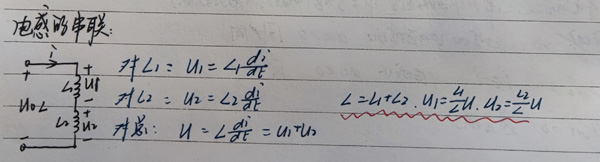 电感的串联:
i
+ L₁ + u₁ -
u L
L₂ + u₂ -
-
对L₁: u₁ = L₁ di/dt
对L₂: u₂ = L₂ di/dt
对总: u = L di/dt = u₁+u₂
L = L₁+L₂ . u₁ = L₁/L u. u₂ = L₂/L u